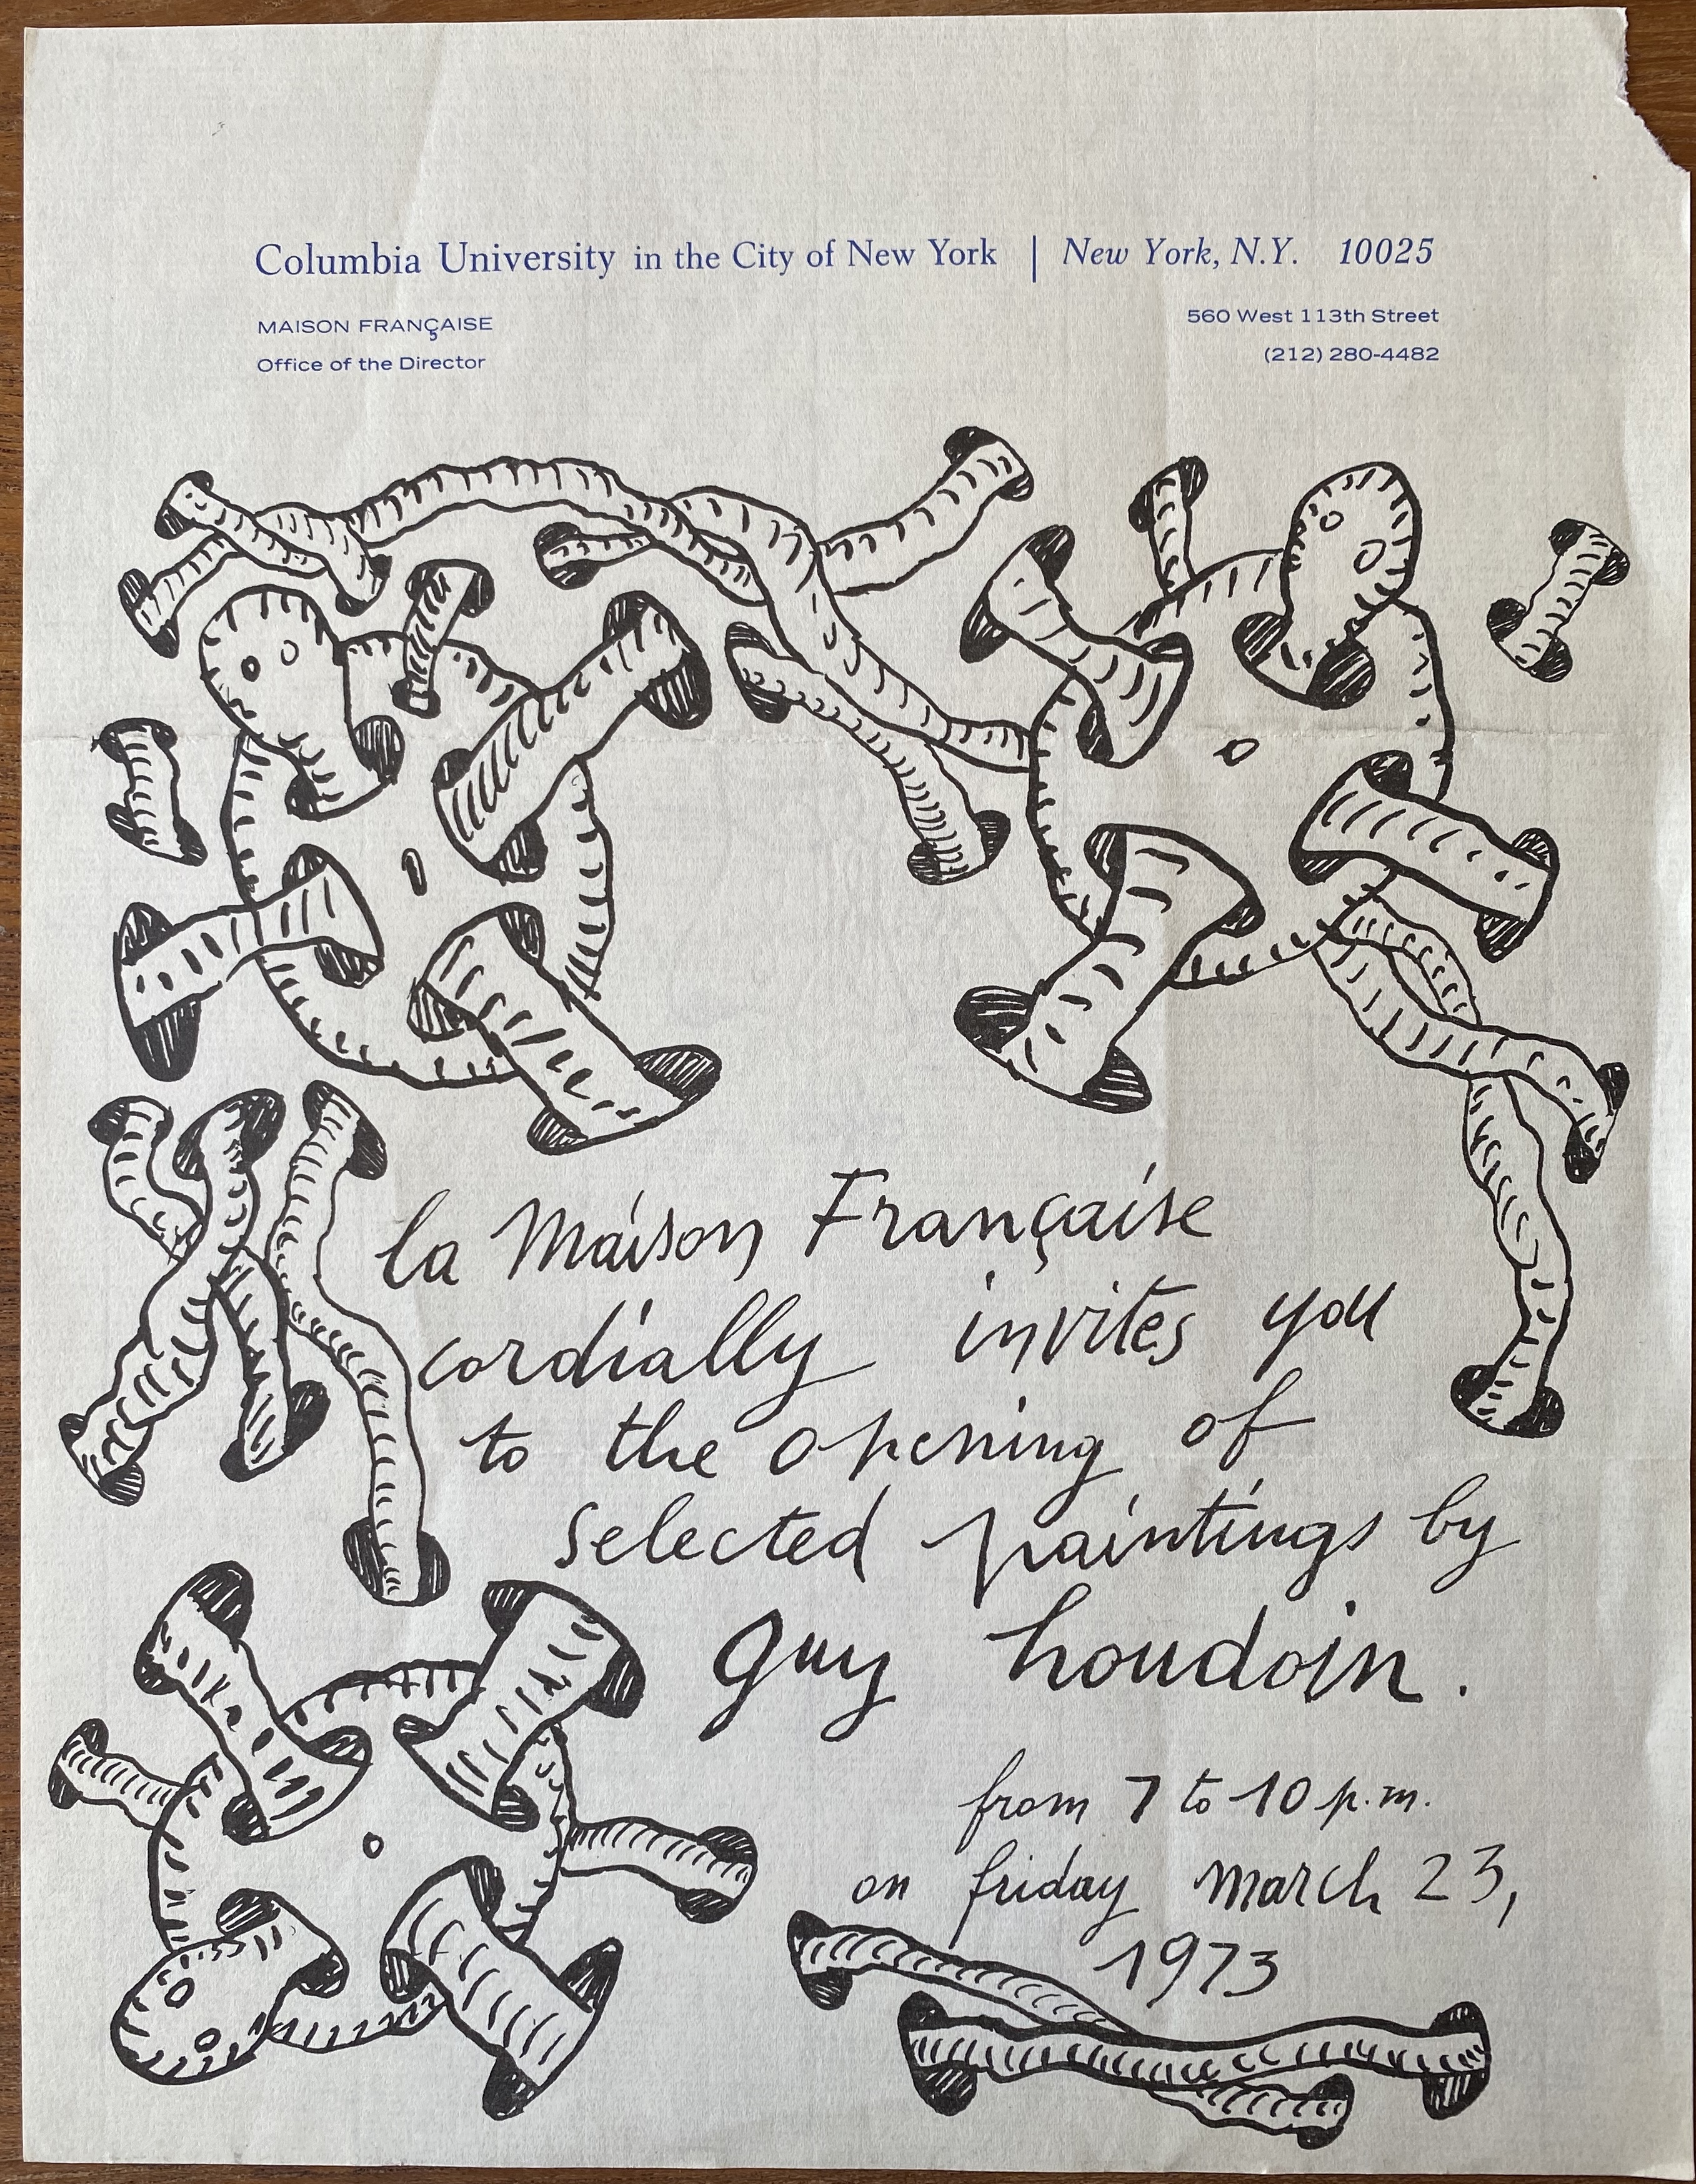 Columbia University in the City of New York | New York, N.Y. 10025
MAISON FRANÇAISE
Office of the Director
560 West 113th Street
(212) 280-4482
la Maison Française
cordially invites you
to the opening of
selected paintings by
guy houdoin.
from 7 to 10 p.m.
on friday march 23,
1973